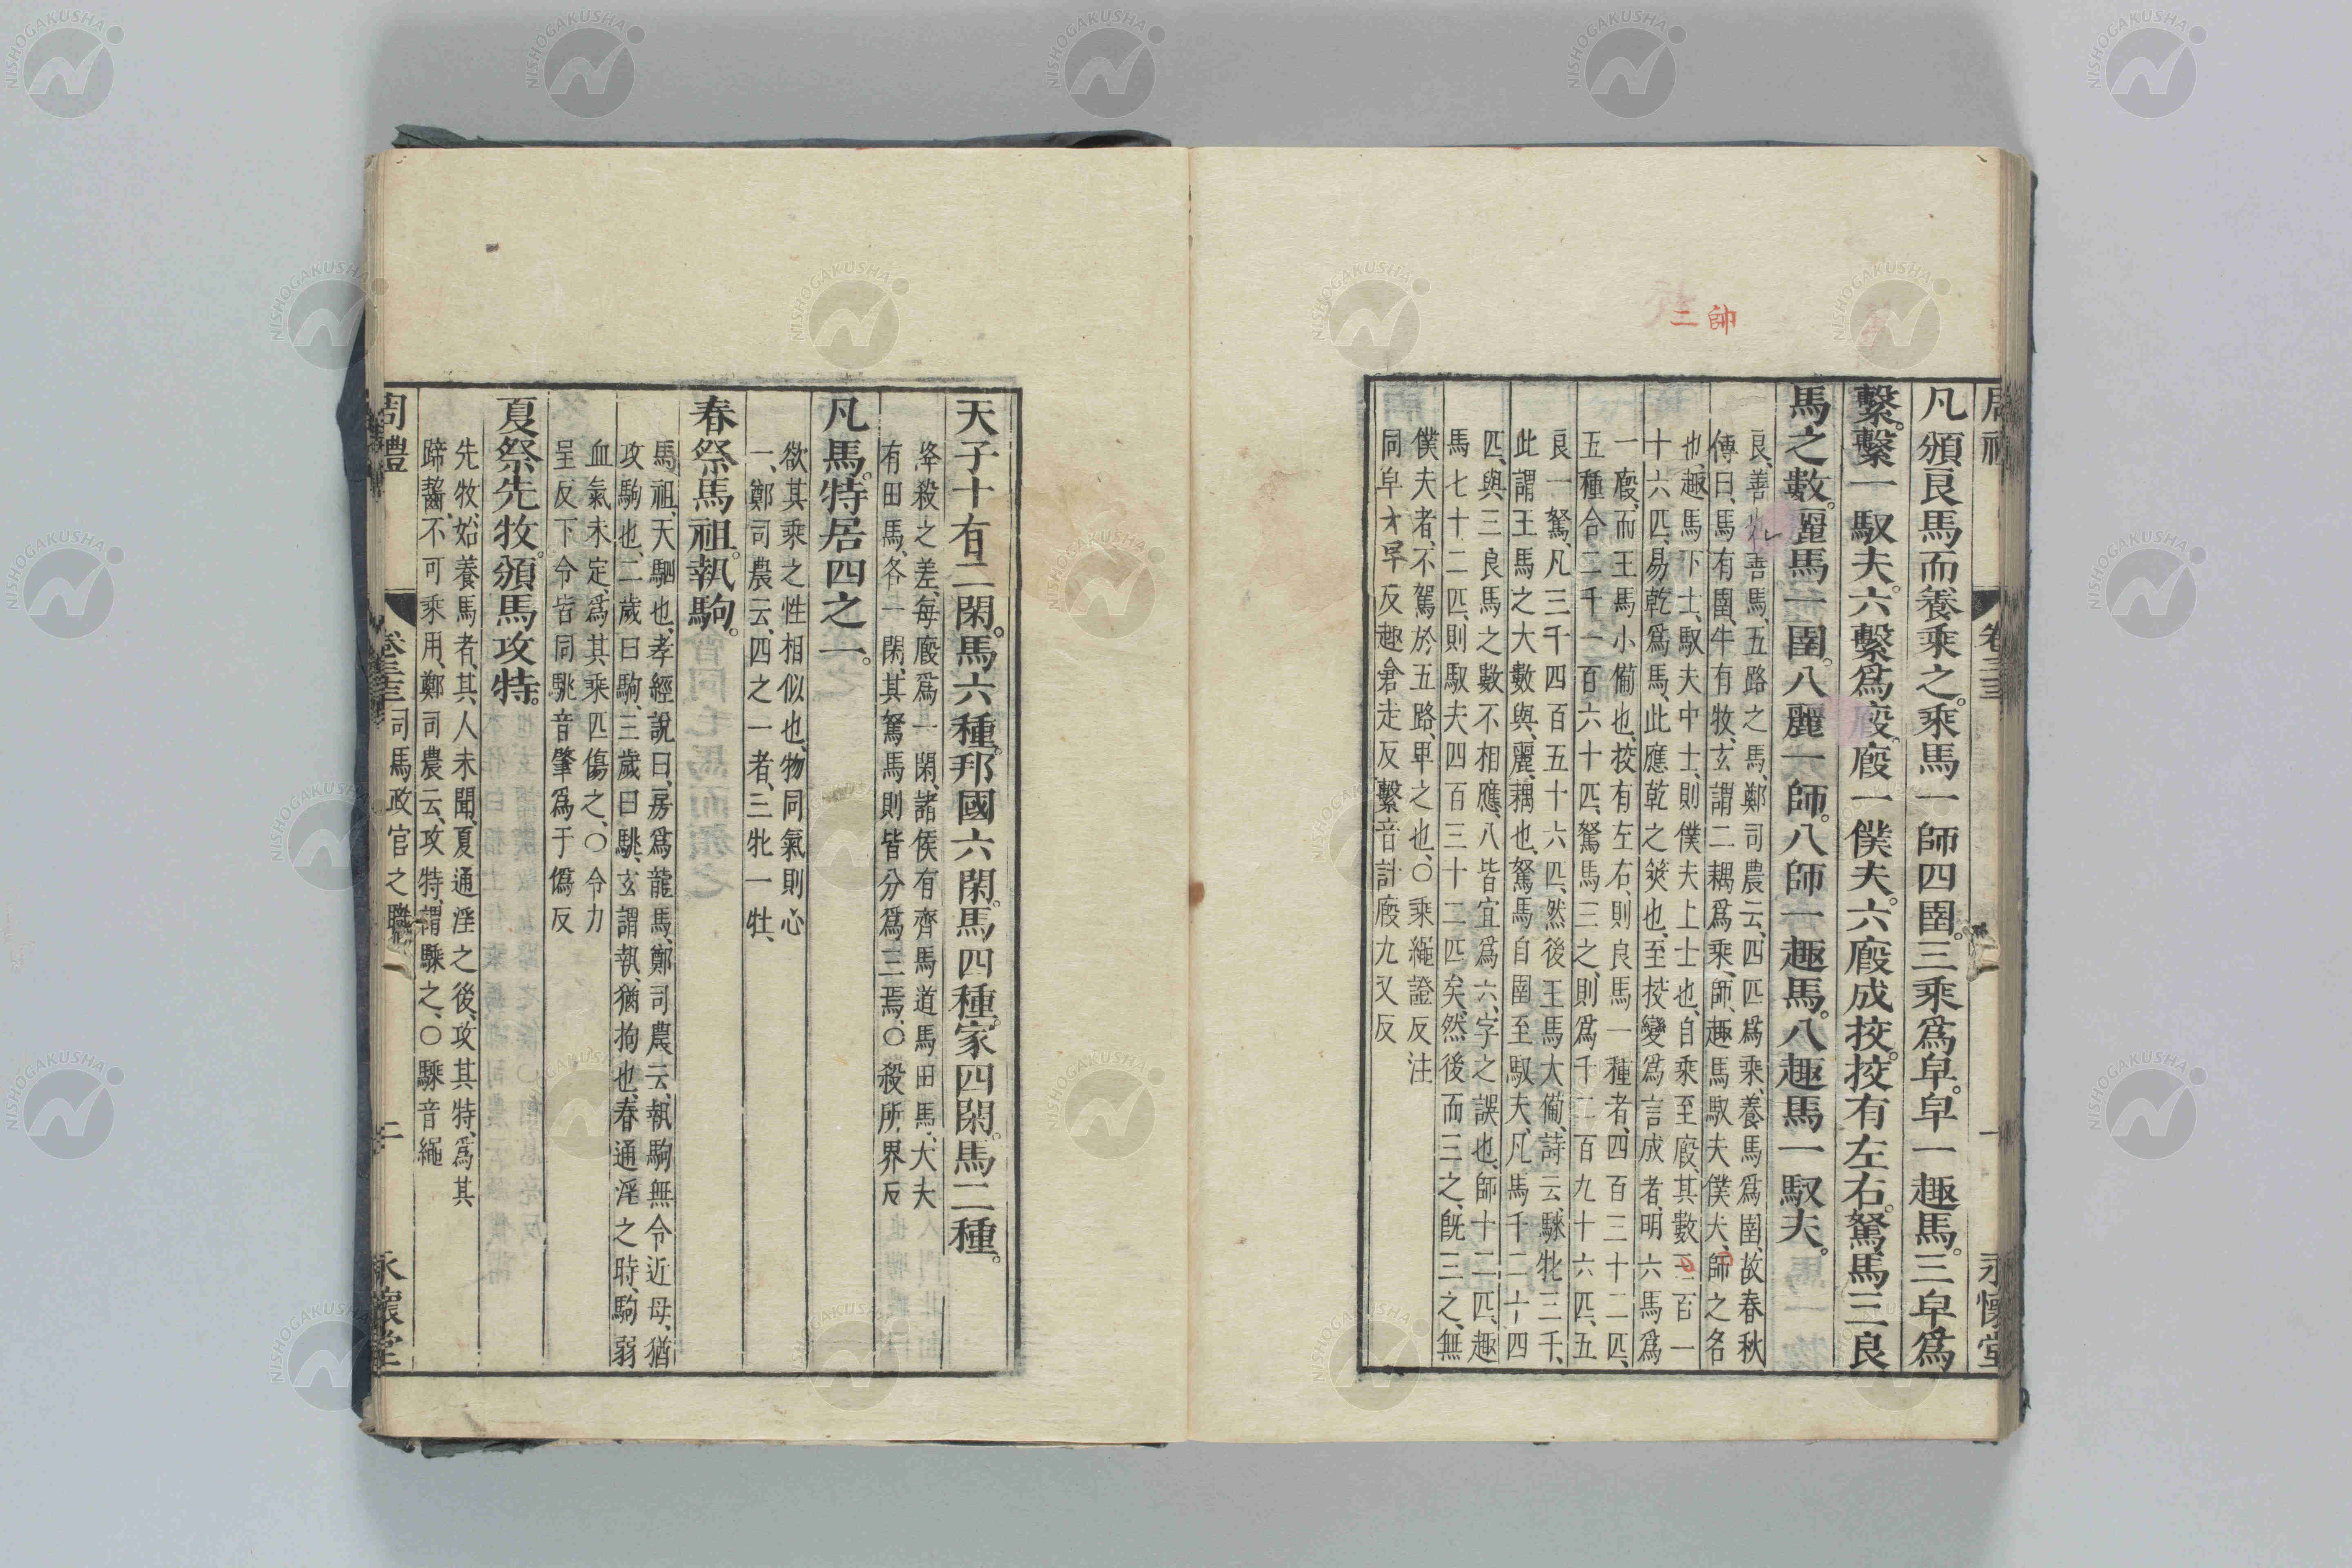 二帥
周禮 卷三十三 一 永懷堂
凡頒良馬而養乘之。乘馬一師四圉。三乘爲皁。皁一趣馬。三皁爲
繫。繫一馭夫。六繫爲廄。廄一僕夫。六廄成挍。挍有左右。駑馬三良
馬之數。麗馬一圉。八麗一師。八師一趣馬。八趣馬一馭夫。
良、善也、善馬、五路之馬、鄭司農云、四匹爲乘、養馬爲圉、故春秋
傳曰、馬有圉、牛有牧、玄謂二耦爲乘、師、趣馬馭夫僕夫、師之名
也、趣馬下士、馭夫中士、則僕夫上士也、自乘至廄、其數二百一
十六匹、易乾爲馬、此應乾之筴也、至挍變爲言成者、明六馬爲
一廄、而王馬小備也、挍有左右、則良馬一種者、四百三十二匹、
五種合二千一百六十匹、駑馬三之、則爲千二百九十六匹、五
良一駑、凡三千四百五十六匹、然後王馬大備、詩云、騋牝三千、
此謂王馬之大數與、麗、耦也、駑馬自圉至馭夫、凡馬千二十四
匹、與三良馬之數不相應、八皆宜爲六、字之誤也、師十二匹、趣
馬七十二匹、則馭夫四百三十二匹矣、然後而三之、旣三之、無
僕夫者、不駕於五路、卑之也、〇乘繩證反注
同皁才早反趣倉走反繫音計廄九又反
天子十有二閑。馬六種。邦國六閑。馬四種。家四閑。馬二種。
降殺之差、每廄爲一閑、諸侯有齊馬道馬田馬、大夫
有田馬、各一閑、其駑馬則皆分爲三焉、〇殺所界反
凡馬。特居四之一。
欲其乘之性相似也、物同氣則心
一、鄭司農云、四之一者、三牝一牡、
春祭馬祖。執駒。
馬祖、天駟也、孝經說曰、房爲龍馬、鄭司農云、執駒無令近母、猶
攻駒也、二歲曰駒、三歲曰駣、玄謂執、猶拘也、春通淫之時、駒弱
血氣未定、爲其乘匹傷之、〇令力
呈反下令皆同駣音肇爲于僞反
夏祭先牧。頒馬攻特。
先牧、始養馬者、其人未聞、夏通淫之後、攻其特、爲其
蹄齧、不可乘用、鄭司農云、攻特、謂騬之、〇騬音繩
周禮 卷三十三 司馬政官之職 二 永懷堂